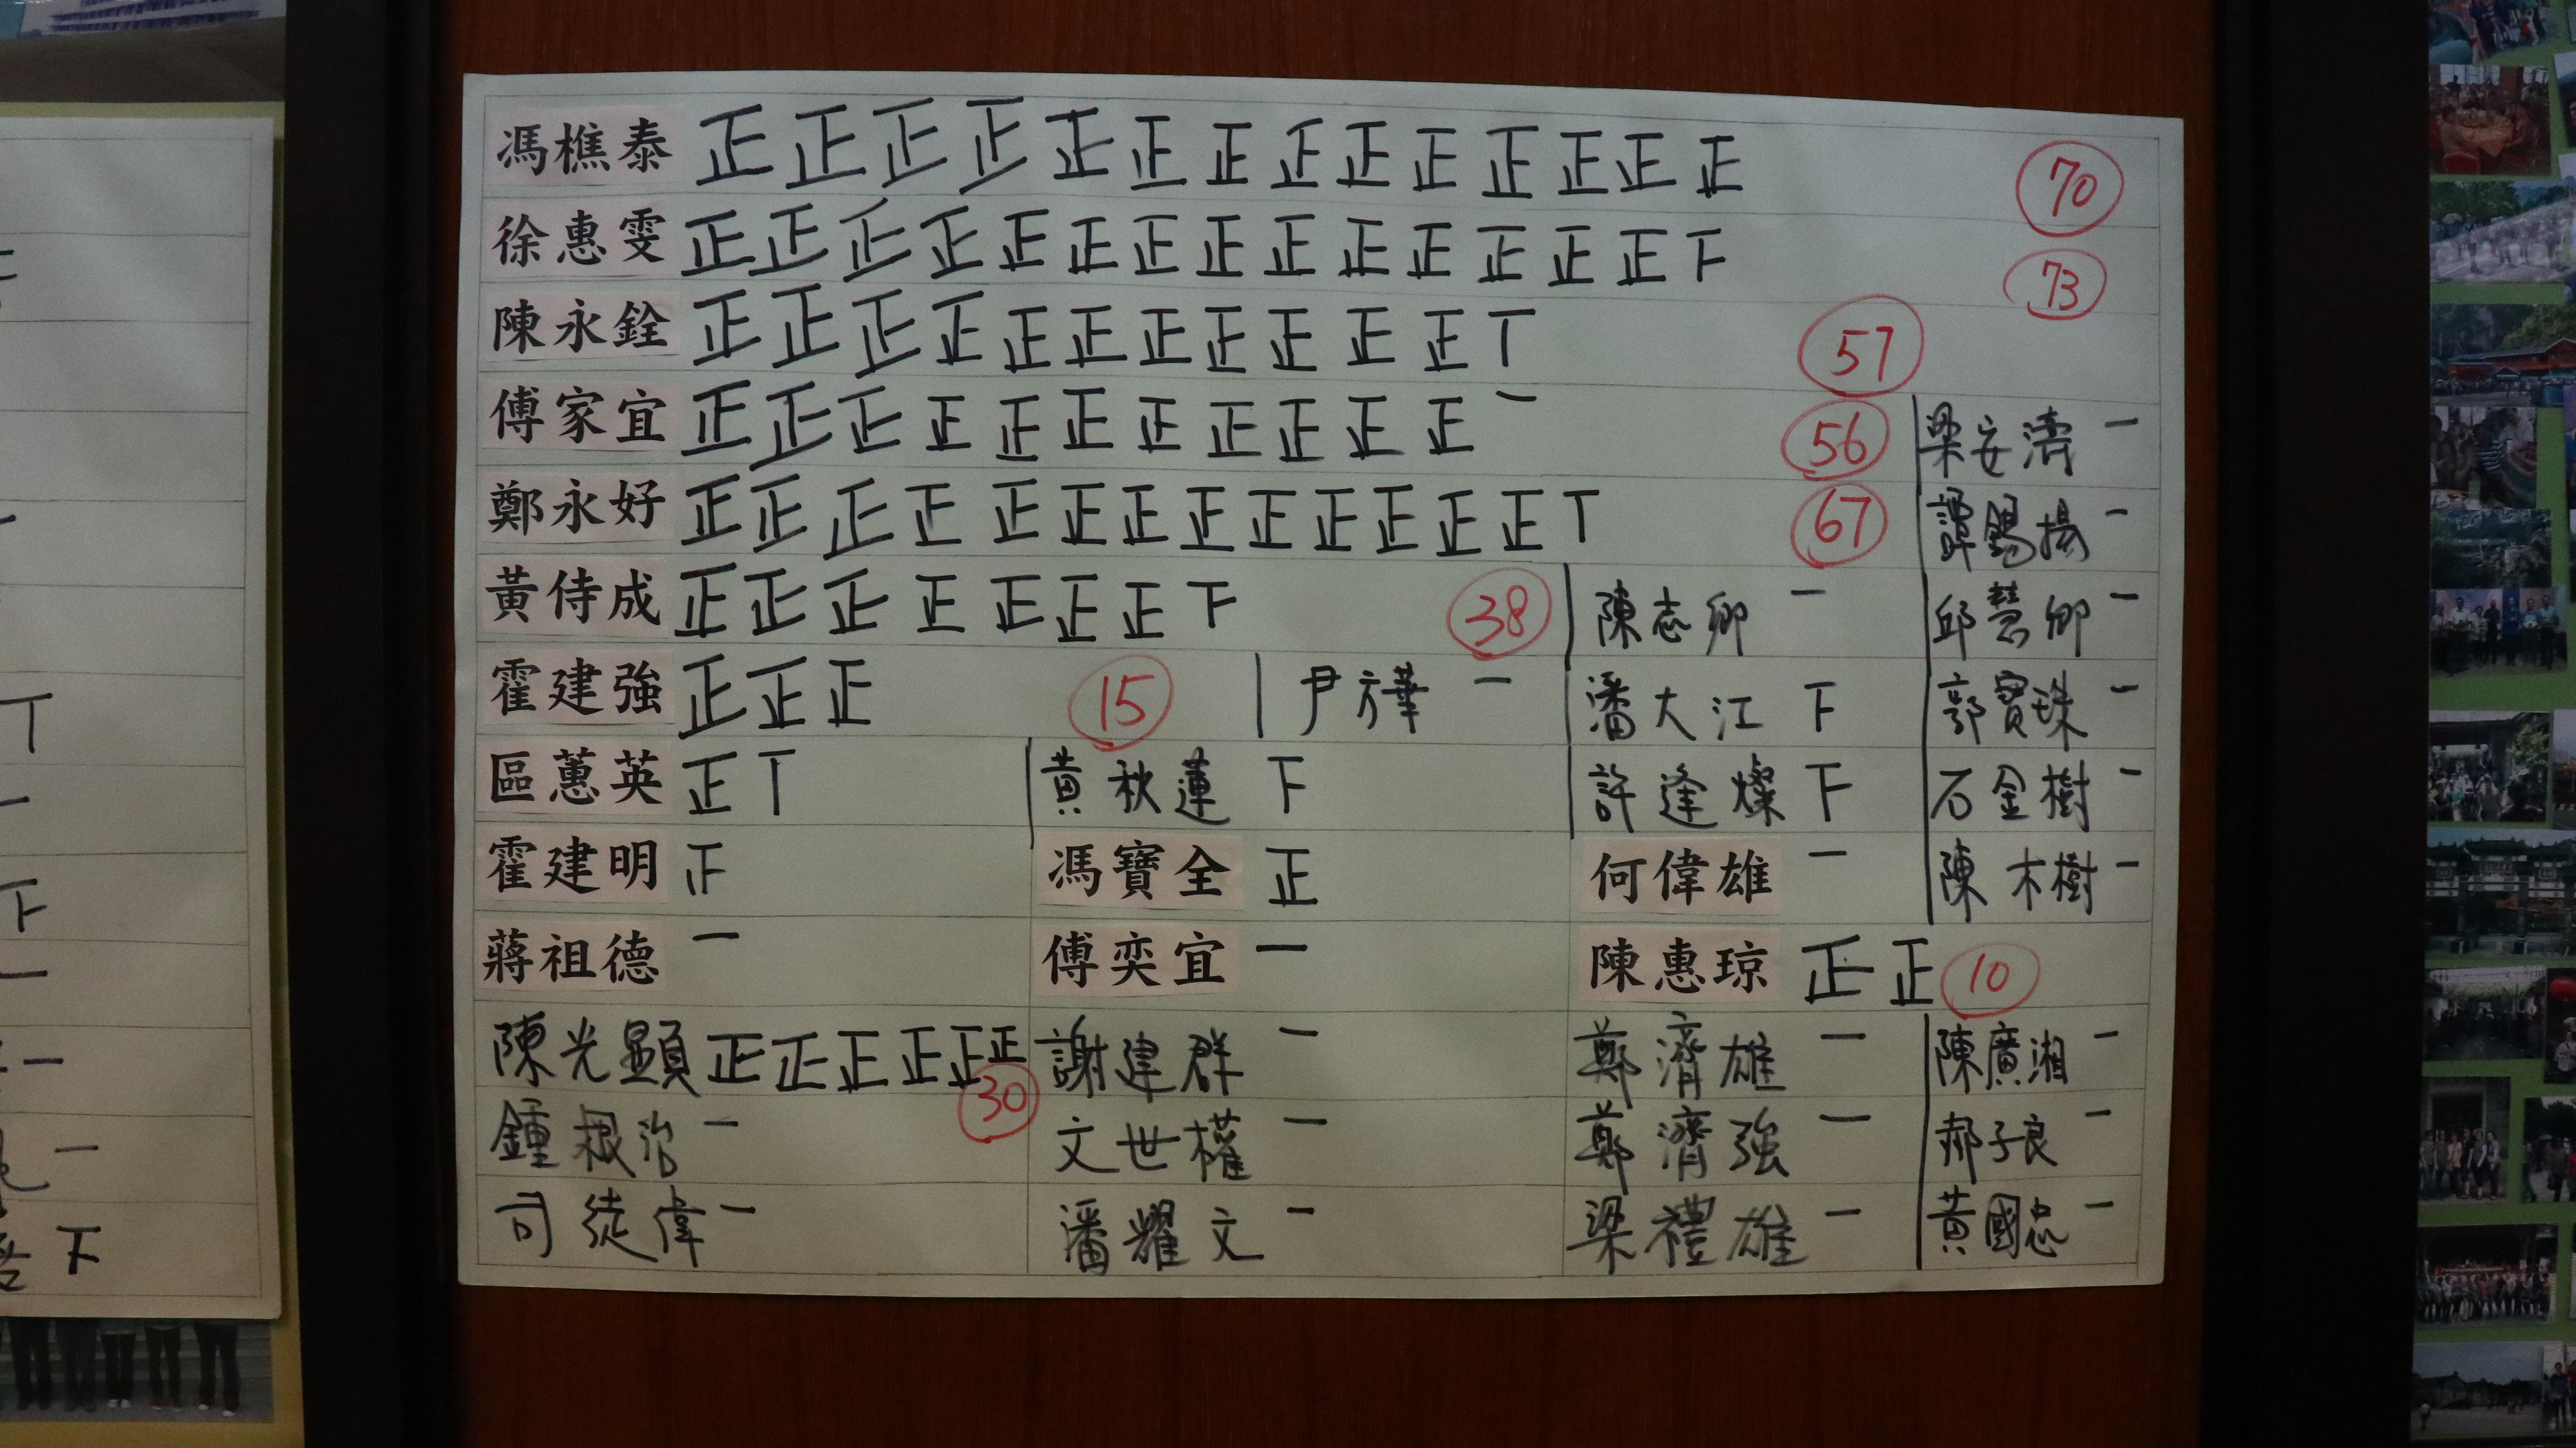 馮樵泰 正正正正正正正正正正正正正正 70
徐惠雯 正正正正正正正正正正正正正正下 73
陳永銓 正正正正正正正正正正正丅 57
傅家宜 正正正正正正正正正正正一 56 梁安濤 一
鄭永好 正正正正正正正正正正正正正丅 67 譚錫揚 一
黃侍成 正正正正正正正下 38 陳志卿 一 邱慧卿 一
霍建強 正正正 15 尹方華 一 潘大江 下 郭寶珠 一
區蕙英 正丅 黃秋蓮 下 許逢燦 下 石金樹 一
霍建明 馮寶全 正 何偉雄 一 陳木樹 一
蔣祖德 一 傅奕宜 一 陳惠琼 正正 10
陳光顯 正正正正正正 30 謝建群 一 鄭濟雄 一 陳廣湘 一
鍾根治 一 文世權 一 鄭濟強 一 郝子良 一
司徒偉 一 潘耀文 一 梁禮雄 一 黃國忠 一